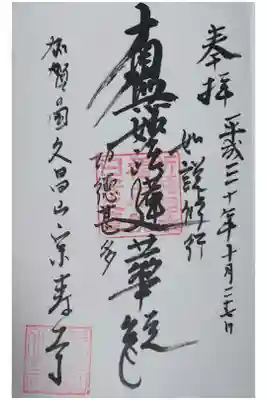 奉拝 平成二十年十月二七日
如説修行
南無妙法蓮華経
功徳甚多
加賀國久昌山宗寿寺